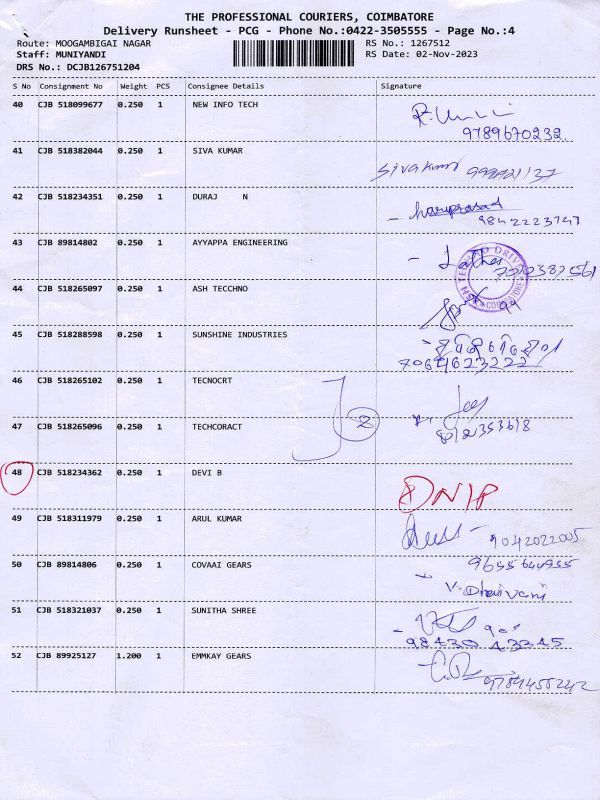 THE PROFESSIONAL COURIERS, COIMBATORE
Delivery Runsheet - PCG - Phone No.:0422-3505555 - Page No.:4
Route: MOOGAMBIGAI NAGAR RS No.: 1267512
Staff: MUNIYANDI RS Date: 02-Nov-2023
DRS No.: DCJB126751204
S No Consignment No Weight PCS Consignee Details Signature
40 CJB 518099677 0.250 1 NEW INFO TECH
9789670232
41 CJB 518382044 0.250 1 SIVA KUMAR
Sivakumar
42 CJB 518234351 0.250 1 DURAJ N
- hariprasad
9842223747
43 CJB 89814802 0.250 1 AYYAPPA ENGINEERING
44 CJB 518265097 0.250 1 ASH TECCHNO
45 CJB 518288598 0.250 1 SUNSHINE INDUSTRIES
46 CJB 518265102 0.250 1 TECNOCRT
2
47 CJB 518265096 0.250 1 TECHCORACT
48 CJB 518234362 0.250 1 DEVI B
49 CJB 518311979 0.250 1 ARUL KUMAR
9042022005
50 CJB 89814806 0.250 1 COVAAI GEARS
9655644955
51 CJB 518321037 0.250 1 SUNITHA SHREE
98430 43345
52 CJB 89925127 1.200 1 EMMKAY GEARS